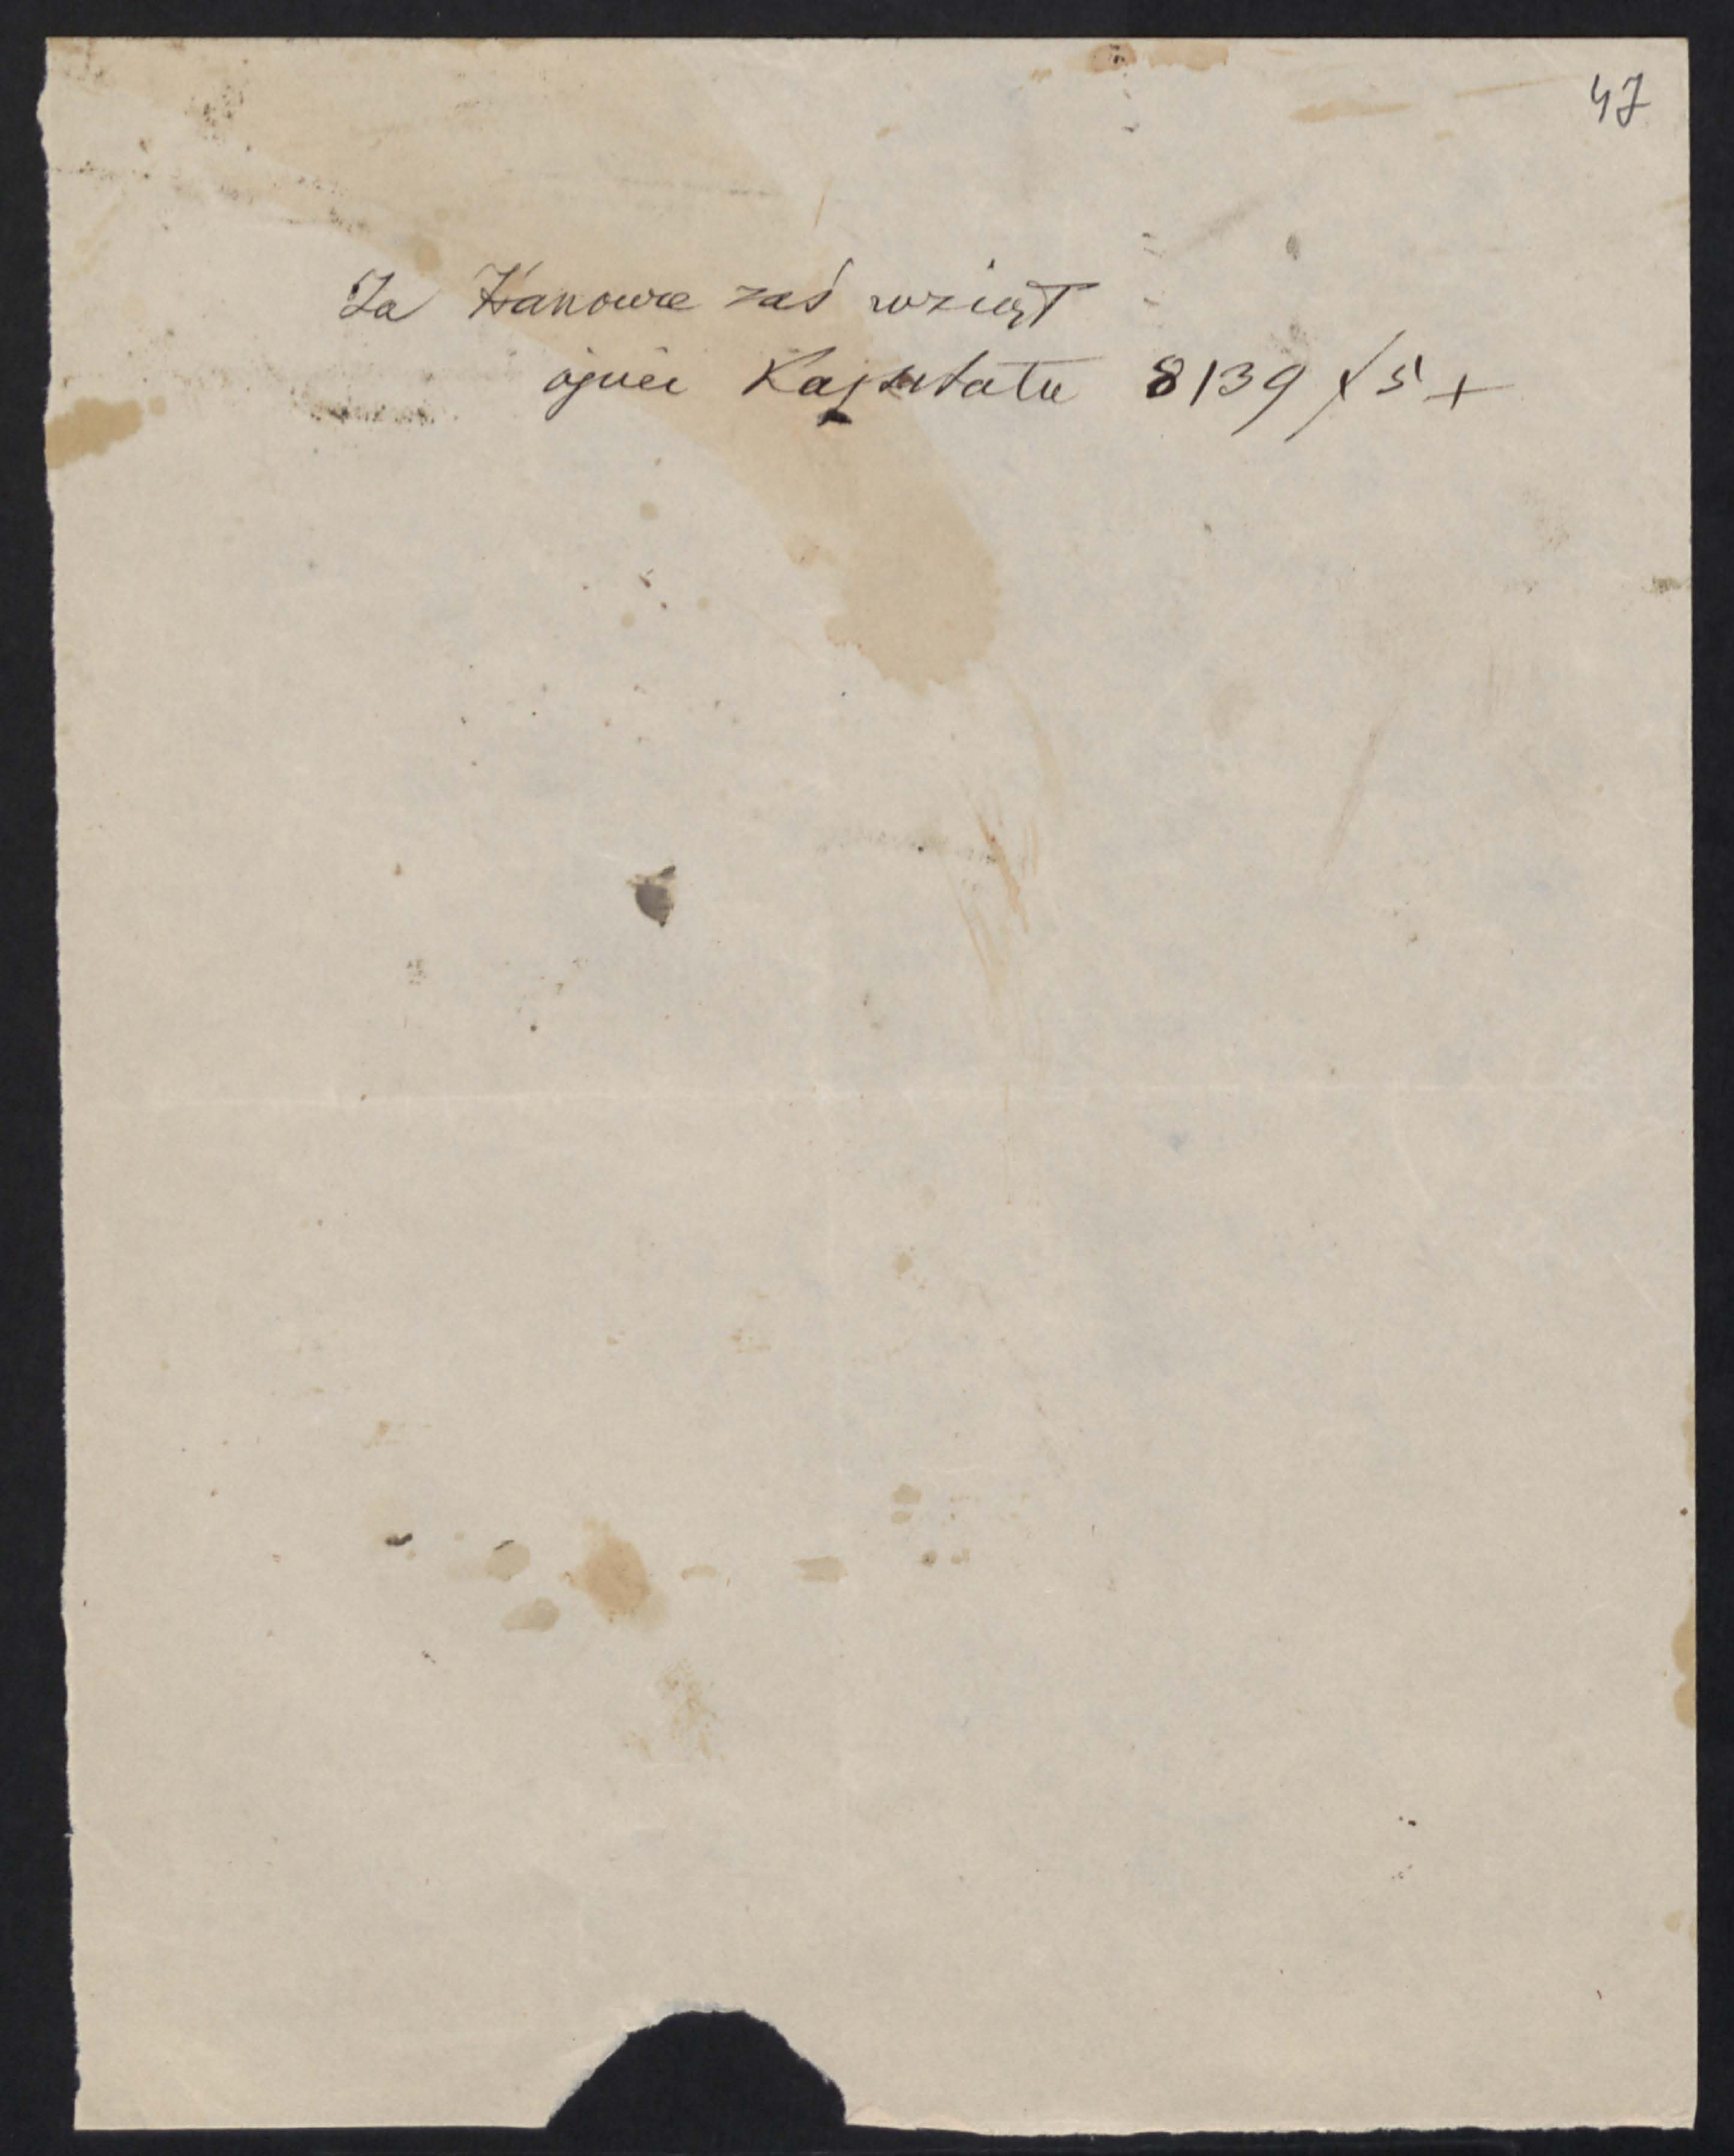 47
Za Hanowce zaś wziąt
ojciec Kapitatu 8139 x 5 +